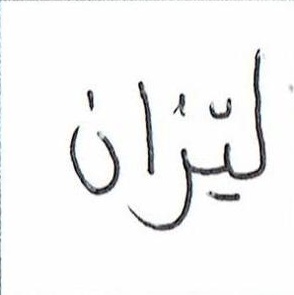 ليّزان